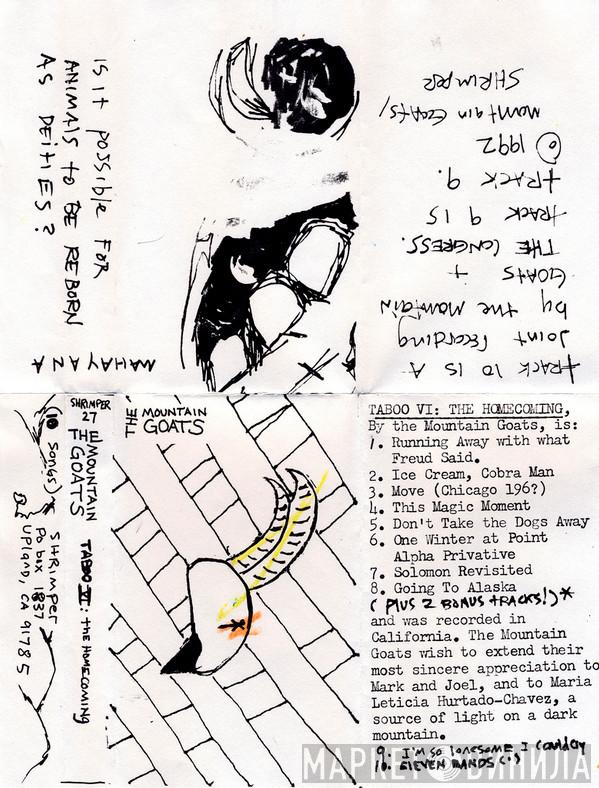 IS IT POSSIBLE FOR
ANIMALS TO BE REBORN
AS DEITIES?
MAHAYANA
TRACK 10 IS A
JOINT RECORDING
by the MOUNTAIN
GOATS +
THE CONGRESS.
TRACK 9 IS
TRACK 9.
© 1992
MOUNTAIN GOATS/
SHRIMPER
SHRIMPER
27
THE MOUNTAIN
GOATS
TABOO VI: the HOMECOMING
(10 SONGS)*
SHRIMPER
PO box 1837
UPland, CA 91785
THE MOUNTAIN
GOATS
TABOO VI: THE HOMECOMING,
By the Mountain Goats, is:
1. Running Away with what
Freud Said.
2. Ice Cream, Cobra Man
3. Move (Chicago 196?)
4. This Magic Moment
5. Don't Take the Dogs Away
6. One Winter at Point
Alpha Privative
7. Solomon Revisited
8. Going To Alaska
(PLUS 2 BONUS TRACKS!)*
and was recorded in
California. The Mountain
Goats wish to extend their
most sincere appreciation to
Mark and Joel, and to Maria
Leticia Hurtado-Chavez, a
source of light on a dark
mountain.
9. I'm So Lonesome I Could Cry
10. ELEVEN BANDS (•)
МАРКЕТ ВИНИЛА